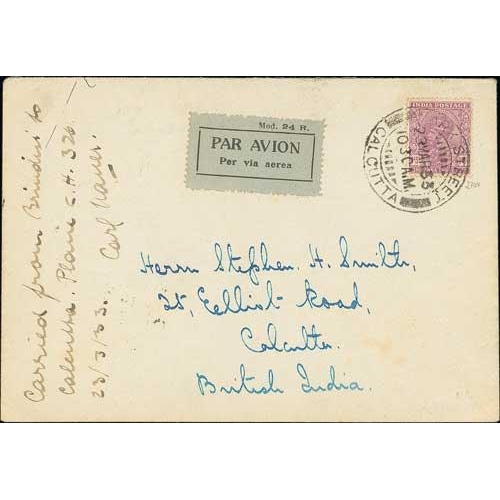 Carried from Brindisi to
Calcutta. Plane C.H. 326
23/3/33. Carl Nauer.
Mod. 24 R.
PAR AVION
Per via aerea
INDIA POSTAGE
STREET
10 30 AM
CALCUTTA
Herrn Stephen. H. Smith,
25, Eelliot Road,
Calcutta
British India.